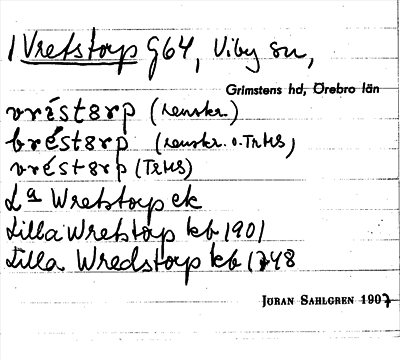 1 Vretstorp G64, Viby sn,
Grimstens hd, Örebro län
vréstørp (renskr.)
bréstørp (renskr. o. TrHS)
vréstørp (TrHS)
La Wretstorp ek
Lilla Wretstorp kb 1901
Lilla Wredstorp kb 1748
JÖRAN SAHLGREN 1907